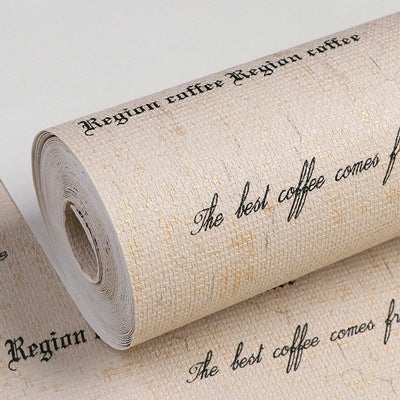 Region coffee Region coffee
The best coffee comes fr
Region
The best coffee comes fr